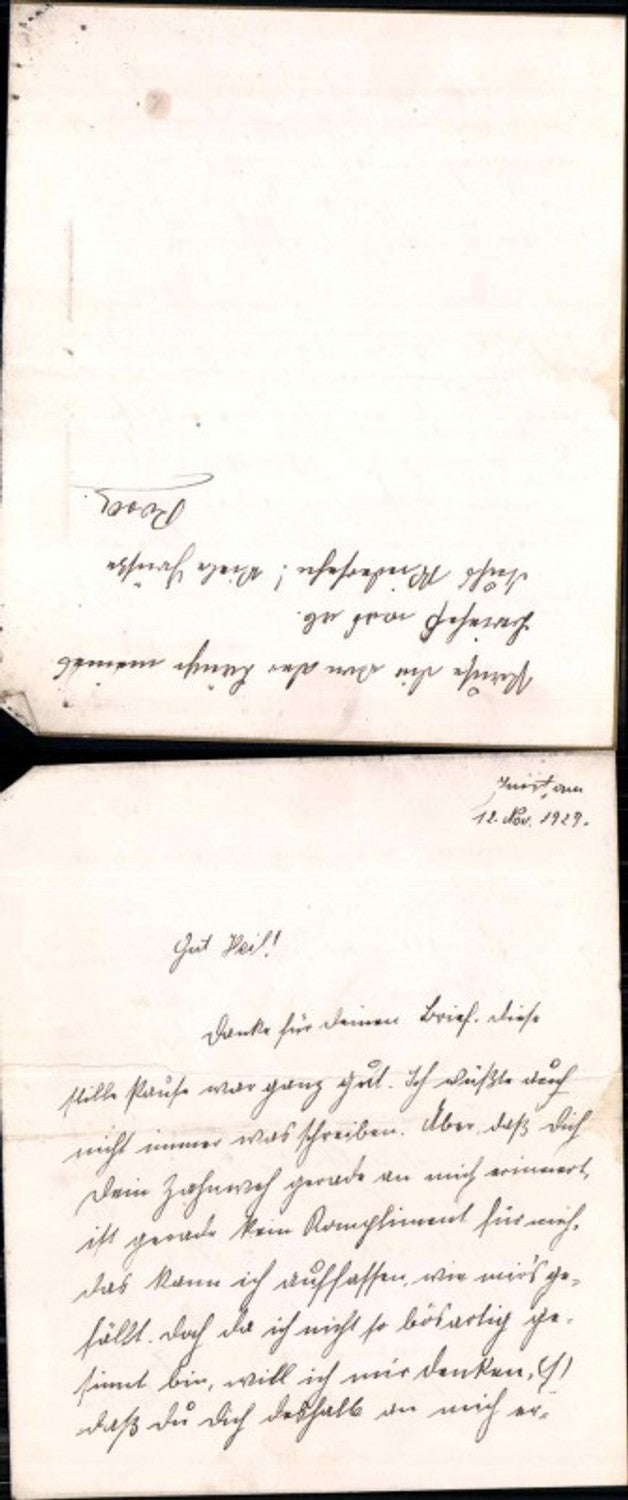 12. Nov. 1929.
Gut Heil!
Danke für Deinen Brief. Diese
stille Pause war ganz gut. Ich wüßte auch
nicht immer was schreiben. Aber, daß Dich
Dein Zahnweh gerade an mich erinnert,
ist gerade kein Kompliment für mich.
Das kann ich auffassen, wie mir's ge-
fällt. Doch da ich nicht so bösartig ge-
sinnt bin, will ich mir denken,
daß Du Dich deshalb an mich er-
Pause Du von der Länge meines
ab.
Aufs Wiedersehn! Viele Grüße